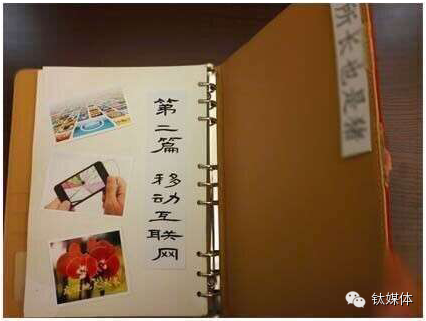 第二篇 移动互联网
所长也是猪
钛媒体